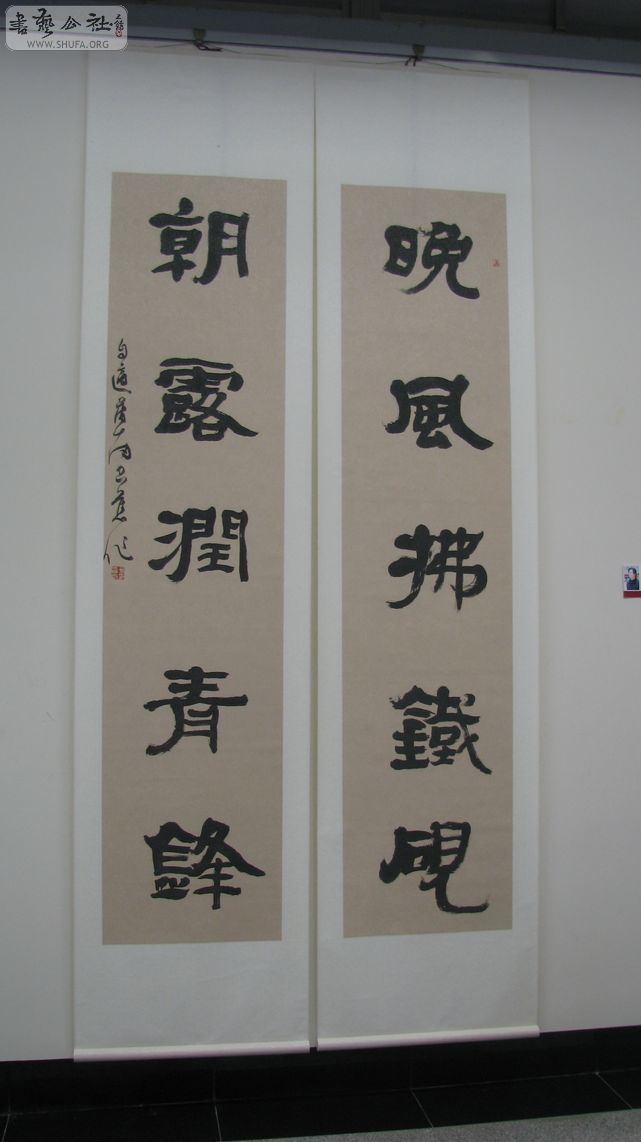 書藝公社
WWW.SHUFA.ORG
晚風拂鐵硯
朝露潤青鋒